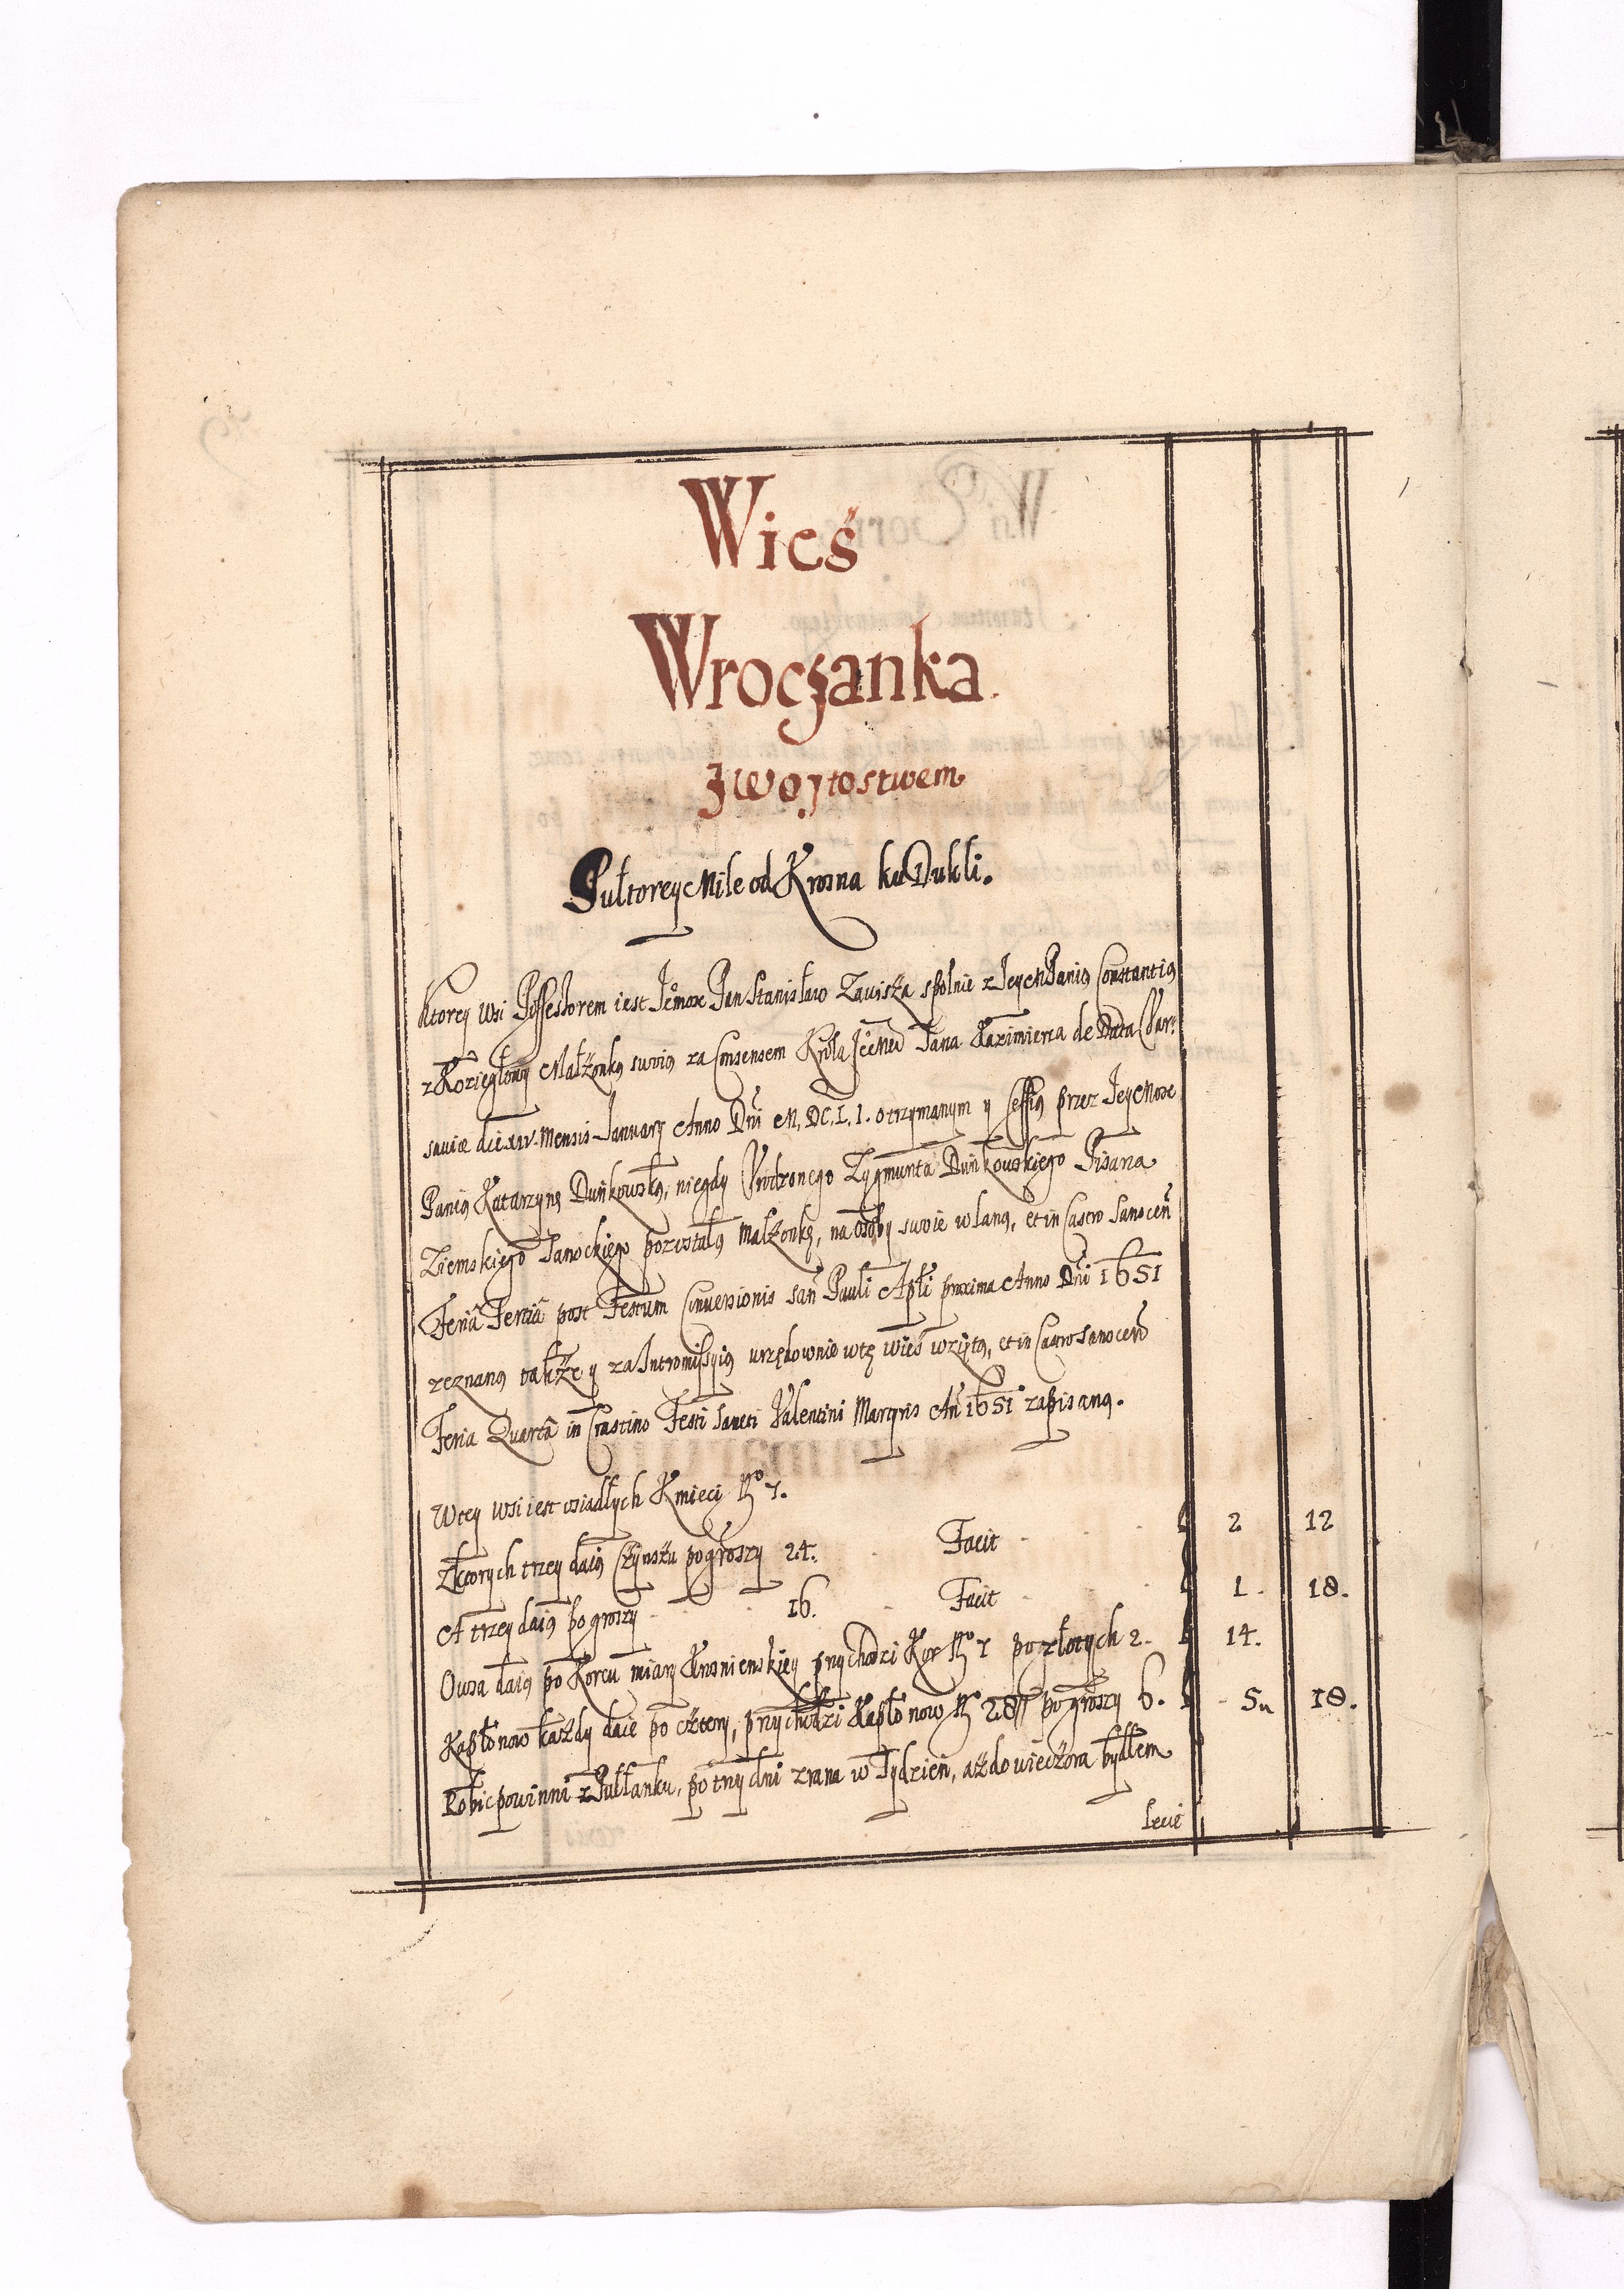 Wieś
Wroczanka.
z woytostwem
Pułtorey Mile od Krosna ku Dukli.
Ktorey Wsi Possessorem iest Jeº mosc Pan Stanisław Zawisza spolnie z Jey M Panią Constantią
z Koziegłow Małżonką swoią za Consensem Krola Je Mci Jana Kazimierza de Data Var:
saviæ die XIV. Mensis January Anno Dni M. DC. L. I. otrzymanym y Cessią przez Jey Mosc
Panią Katarzynę Dunkowską, niegdy Urodzonego Zygmunta Dunkowskiego Pisarza
Ziemskiego Sanockiego pozostałą Małżonkę, na osoby swoie wlaną, et in Castro Sanocen
Feria Tertia post Festum Conversionis San Pauli Apli proxima Anno Dni 1651
zeznaną takze y za Intromissyią urzędownie w tę wieś wziętą, et in Castro Sanocen
Feria Quarta in Crastino Festi Sancti Valentini Martyris An 1651 zapisaną.
W tey Wsi iest osiadłych Kmieci Nº 7.
Z ktorych trzey daią Czynszu po groszy 24. Facit 2 12
A trzey daią po groszy 16. Facit 1. 18.
Owsa daią po Korcu miary Krosnienskiey przychodzi Kor Nº 7 po złotych 2. 14.
Kapłonow każdy daie po cztery, przychodzi Kapłonow Nº 28 po groszy 6. 5 18.
Robic powinni z Pułłanku, po trzy dni z rana w Tydzień, aż do wieczora bydłem